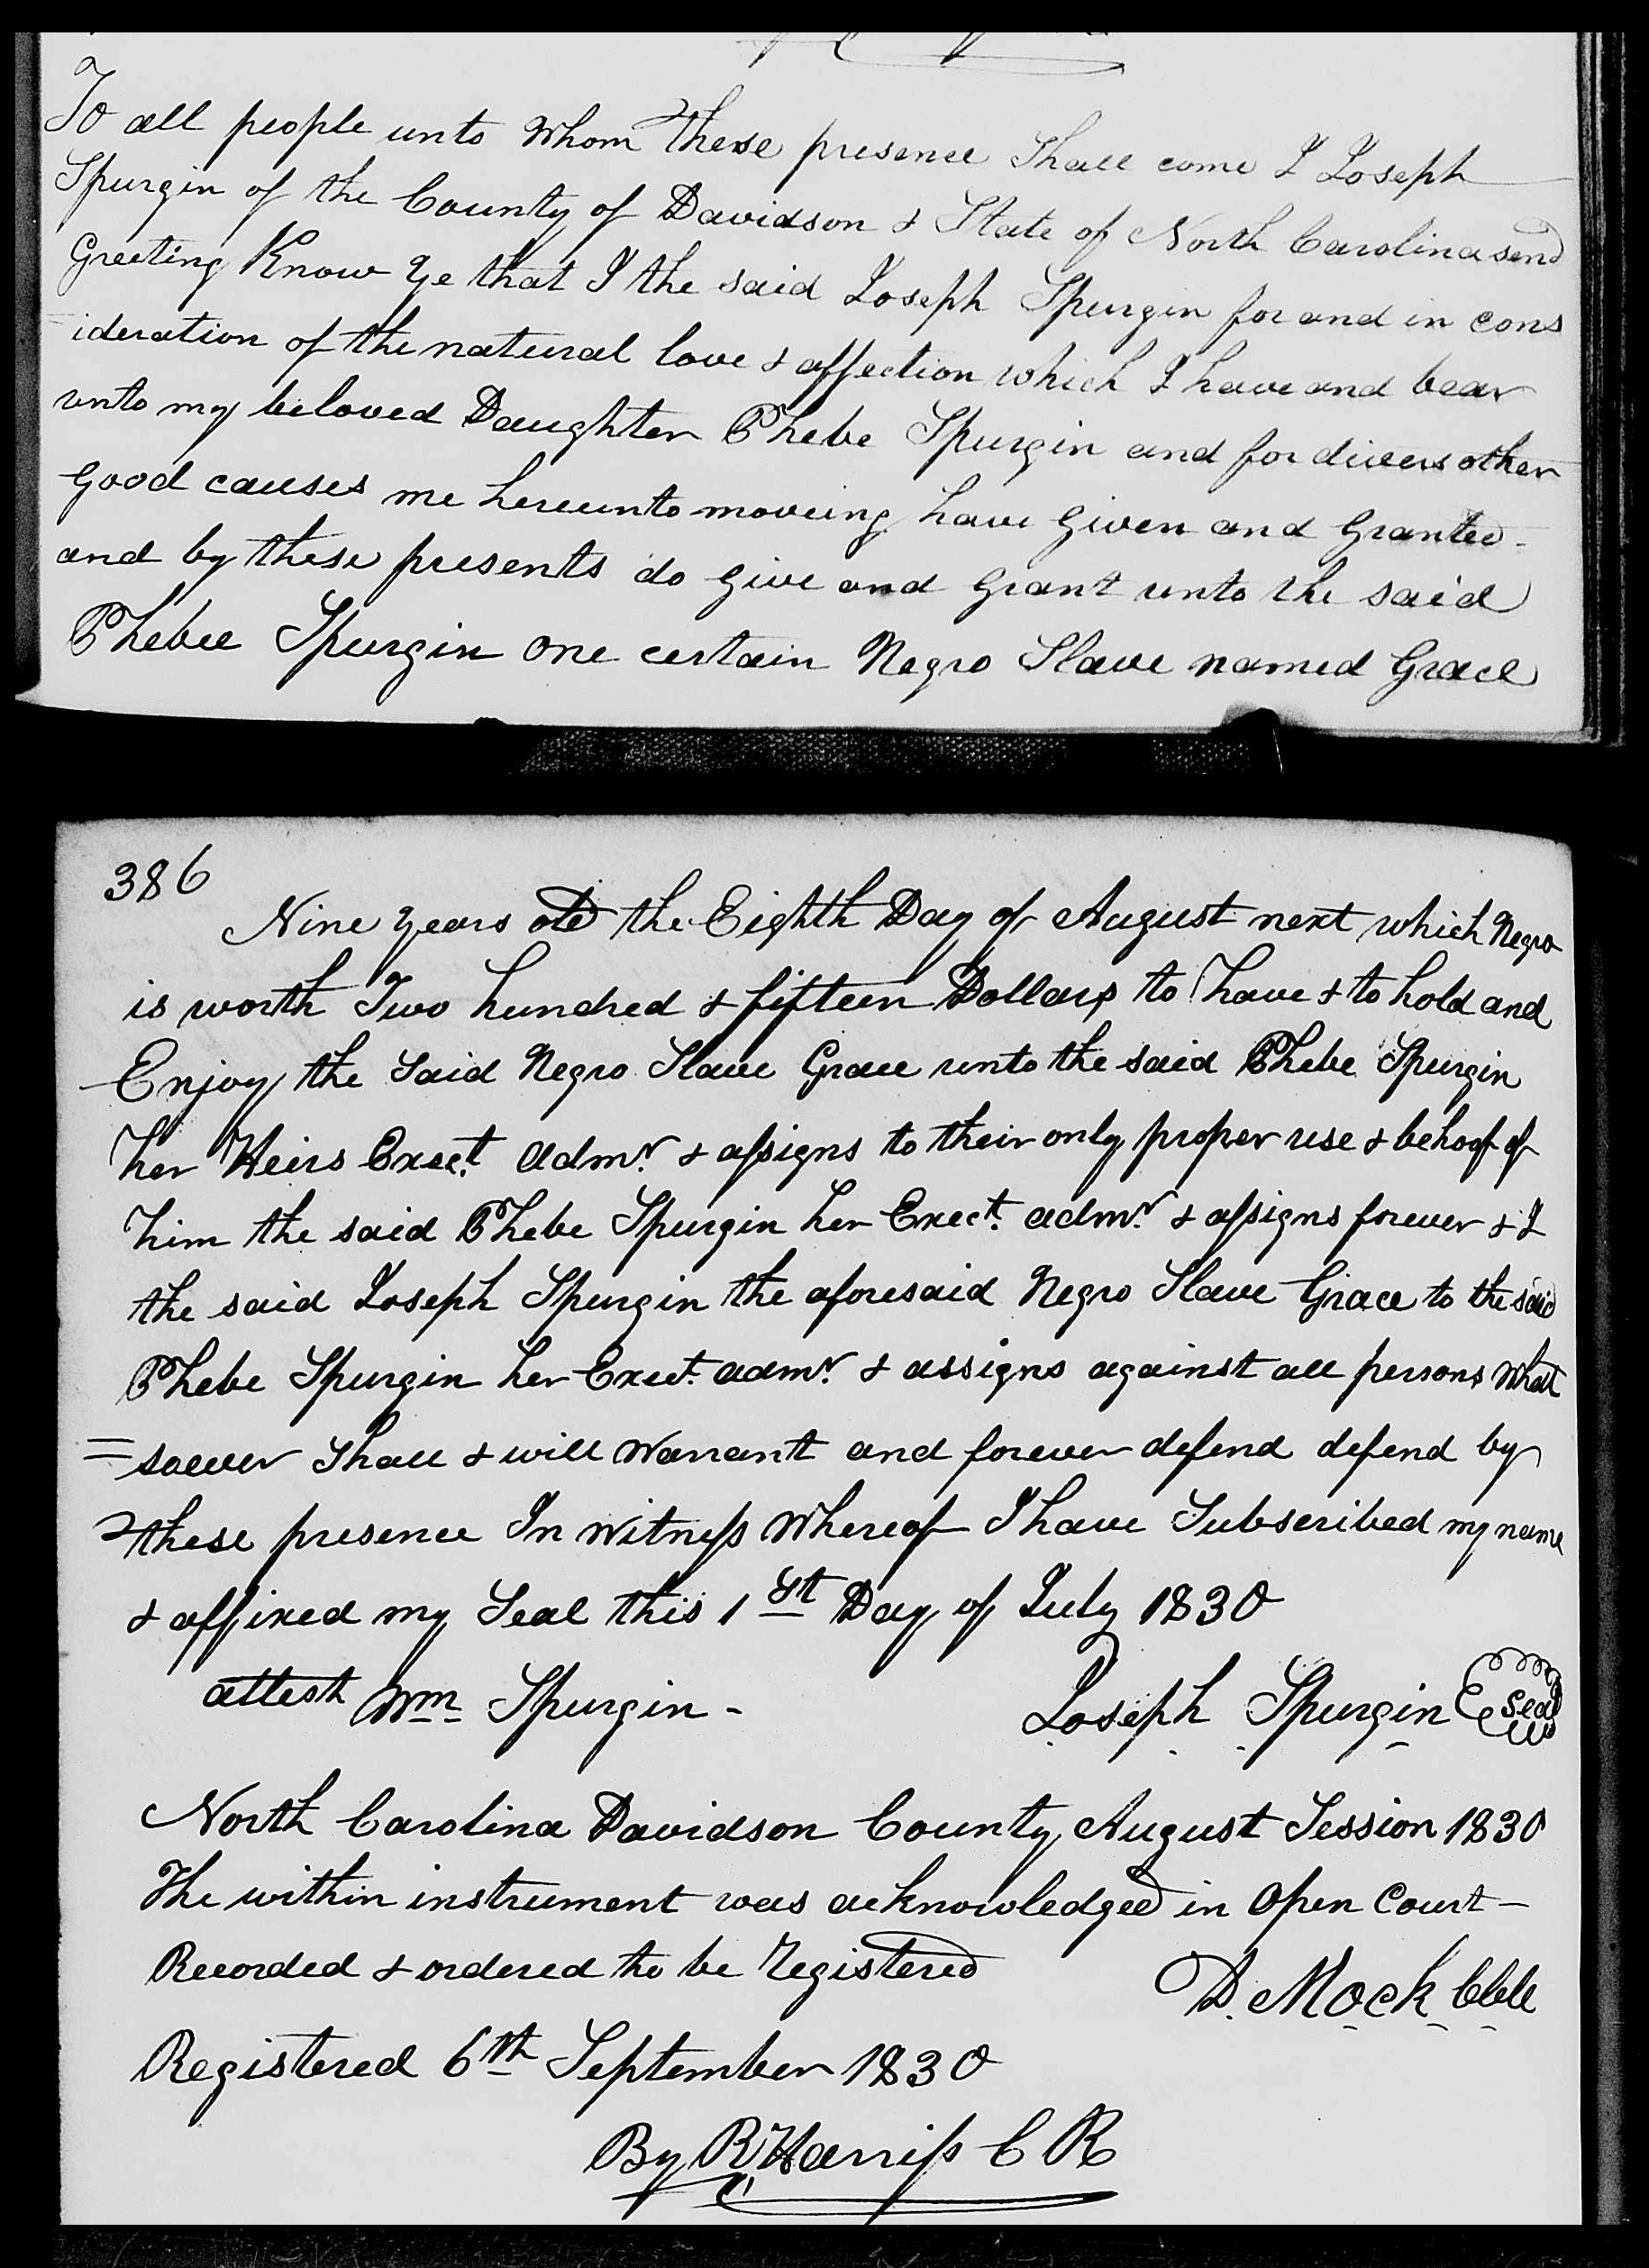 To all people unto Whom these presence Shall come I Joseph
Spurgin of the County of Davidson & State of North Carolina send
Greeting Know Ye that I the said Joseph Spurgin for and in cons
=ideration of the natural love & affection which I have and bear
unto my beloved Daughter Phebe Spurgin and for divers other
good causes me hereunto moveing have Given and Granted -
and by these presents do give and grant unto the said
Phebee Spurgin One certain Negro Slave named Grace
386
Nine years old the Eighth Day of August next which Negro
is worth Two hundred & fifteen Dollars to have & to hold and
Enjoy the said Negro Slave Grace unto the said Phebe Spurgin
her Heirs Exect. Admr. & assigns to their only proper use & behoof of
him the said Phebe Spurgin her Exect. admr. & assigns forever & I
the said Joseph Spurgin the aforesaid Negro Slave Grace to the said
Phebe Spurgin her Exect. admr. & assigns against all persons what
=soever shall & will Warrant and forever defend defend by
these presence In Witness Whereof I have Subscribed my name
& affixed my Seal this 1st Day of July 1830
attest Wm Spurgin - Joseph Spurgin Seal
North Carolina Davidson County August Session 1830
The within instrument was acknowledged in Open Court -
Recorded & ordered to be Registered
D. Mock Clk
Registered 6th September 1830
By R Harriss C R